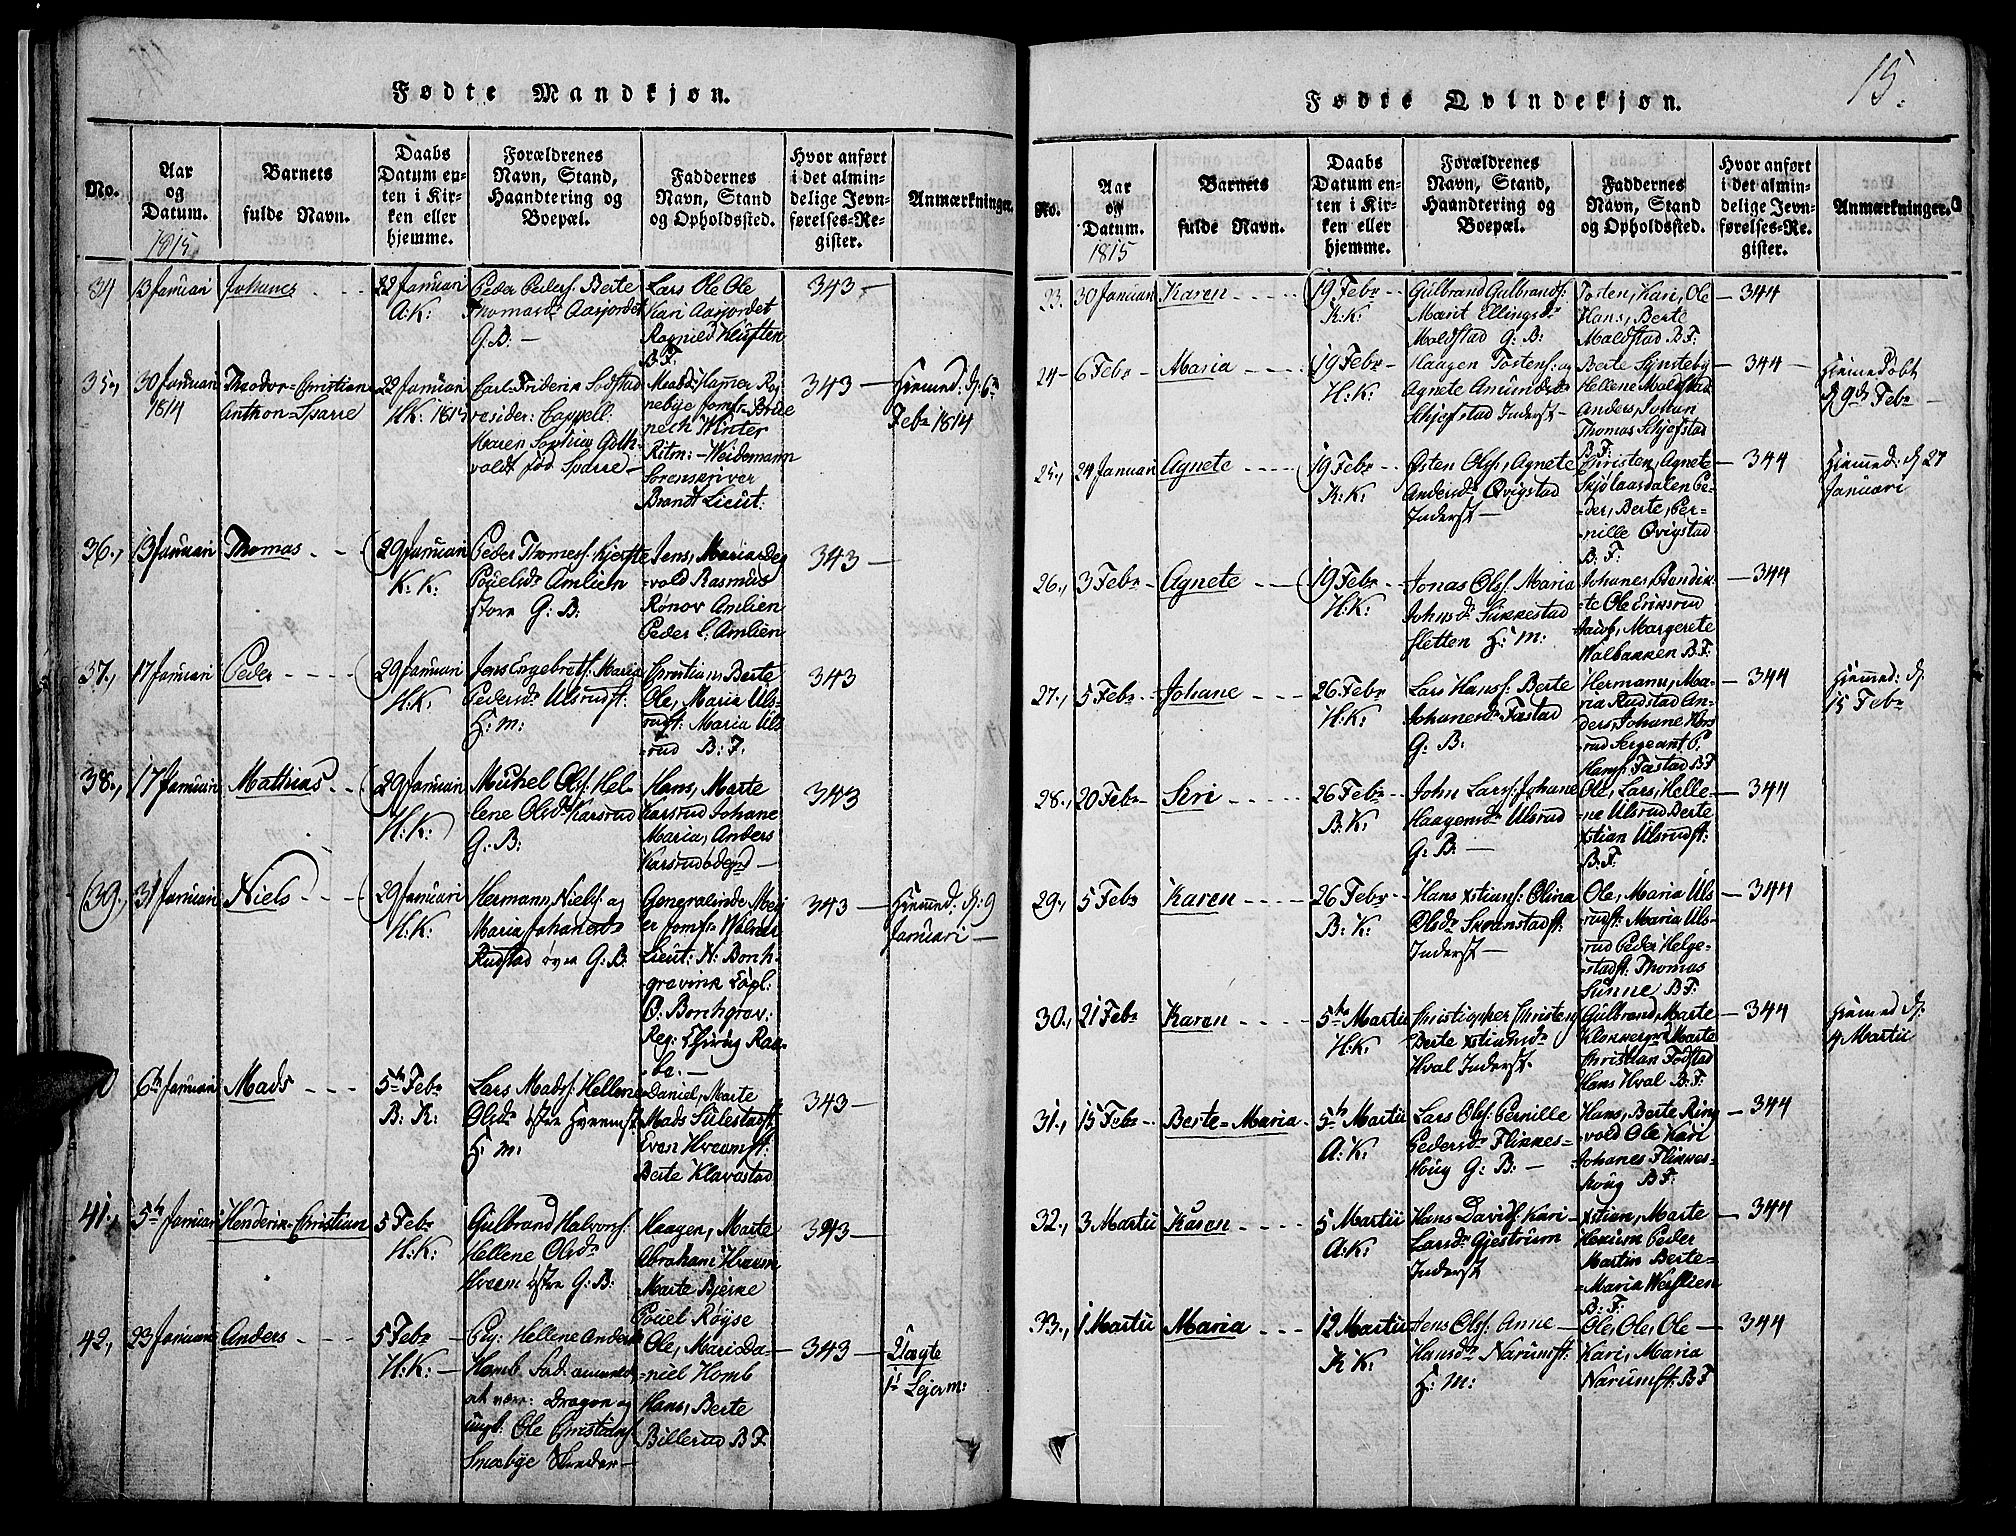 Fødte Mandkjøn.
No.
Aar
og
Datum.
1815
Barnets
fulde Navn.
Daabs
Datum en-
ten i Kir-
ken eller
hjemme.
Forældrenes
Navn, Stand,
Haandtering og
Boepæl.
Faddernes
Navn, Stand
og Opholdssted.
Hvor anført
i det almin-
delige Jevn-
førelses-Re-
gister.
Anmærkninger.
34
13 Januari
Johanes
22 Januari
A: K:
Peder Peders: Berte
Thomasdr Aasjordet
G: B: —
Lars Ole Ole
Kari Aasjordet
Ragnild Kluften
B: F:
343 —
35.,
30 Januari
1814
Theodor=Christian
Anthon=Sparre
29 Januari
H: K: 1815
Carl Friderik
resider: Cappell:
Maren Sophia Goth-
voldt fød Sparre —
Mads Hammer
Winter
Ritm: — Weidemann
Sorenskriver
Brandt Lieut:
343 —
Hiemmed: d: 6
Febr 1814
36.,
13 Januari
Thomas
29 Januari
K: K:
Peder Thomes: Kjerste
Pouelsdr Amlien
store G: B:
Jens, Maria
vold Rasmus
Rønov Amlien
Peder l: Amlien
343 —
37.,
17 Januari
Peder
29 Januari
H: K:
Jens Engebrets: Maria
Pedersdr Ulsrudst:
H: M:
Christian, Berte
Ole, Maria Uls-
rudst: Maria Uls
=rud B: F:
343
38.,
17 Januari
Mathias
29 Januari
H: K:
Michel Ols: Hel-
lene Olsdr Karsrud
G: B:
Hans, Marte
Karsrud Johane
Maria, Anders
Karsrudødegd —
343
39.,
31 Januari
Niels
29 Januari
H: K:
Hermann Niels: og
Maria Johanesdr
Rudstad øvre G: B:
Generalinde Mei-
er Jomfr:
Lieut: N: Borch-
gravink
O: Borchgrav:
343 —
Hiemmed: d: 9
Januari —
6th Januari
Mads
5th Febr
B: K:
Lars Mads: Hellene
Olsdr østre Hveemst
H: M:
Daniel, Marte
Mads Sülestadst
Even Hveemst:
Berte Klavestad
343 —
41.,
5th Januari
Henderik=Christian
5 Febr
H: K:
Gulbrand Halvors:
Hellene Olsdr
Hveem østre G: B:
Haagen, Marte
Abraham Hveem
Marte Bjerke
Pouel Røyse
343 —
42.,
23 Januari
Anders
5 Febr
H: K:
Pig: Hellene Anders
Homb
at være: Dragon og
ungk: Ole Christians:
Ole, Maria Da-
=niel Homb
Hans, Berte
Billerud B: F:
343 —
Uægte
1st Lejerm:
Fødte Qvindekjøn.
15.
No.
Aar
og
Datum.
1815
Barnets
fulde Navn.
Daabs
Datum en-
ten i Kir-
ken eller
hjemme.
Forældrenes
Navn, Stand,
Haandtering og
Boepæl.
Faddernes
Navn, Stand
og Opholdssted.
Hvor anført
i det almin-
delige Jevn-
førelses-Re-
gister.
Anmærkninger.
23.
30 Januari
Karen
19 Febr
K: K:
Gulbrand Gulbrands:
Marit Ellingsdr
Maldstad G: B:
Tosten, Kari, Ole
Hans, Berte
Maldstad B: F:
344
24
6 Febr
Maria
19 Febr
H: K:
Haagen Tostens: og
Agnete Amundsdr
Schjefstad Inderst —
Berte Sÿnsteby
Hellene Maldstad
Anders, Tostan
Thomas Schjefstad
B: F:
344 —
Hiemmedobt
d 9de Febr —
25.,
24 Januari
Agnete
19 Febr
K: K:
Østen Ols:, Agnete
Andersdr Qvigstad
Inderst —
Christen, Agnete
Skjølaasdalen Pe-
=der, Berte, Per-
nille Qvigstad
B: F:
344
Hiemmed: d 27
Januari
26.,
3 Febr
Agnete
19 Febr
H: K:
Jonas Ols: Maria
Johnsdr Sukkestad
sletten H: M:
Johanes Bendik-
=te Ole Eriksrud
Jacob, Margerete
Walbakken B: F:
344
27.,
5 Febr
Johane
26 Febr
H: K:
Lars Hans: Berte
Johanesdr Fastad
G: B:
Hermann, Ma-
ria Rudstad An-
ders Johane
rud Sergeant P:
Hans: Fastad B F
344
Hiemmed: d:
15 Febr
28.,
20 Febr
Siri
26 Febr
B: K:
John Lars: Johane
Haagensdr Ulsrud
G: B: —
Ole, Lars, Helle-
=ne Ulsrud Berte
Xstian Ulsrudst:
B: F:
344
29.,
5 Febr
Karen
26 Febr
B: K:
Hans Xstians: Olina
Olsdr Skramstadst:
Inderst —
Ole, Maria Uls-
rudst: Maria Uls-
rud Peder Helge-
=stadst: Thomas
Sünne B: F:
344
30.,
21 Febr
Karen
5th Martii
H: K:
Christopher Christens:
Berte Xstiansdr
Hval Inderst.
Gulbrand, Marte
Klokkergrd Marte
Christian Fodstad
Hans Hval B: F:
344
Hiemmed d:
4 Martii
31.,
15 Febr
Berte=Maria
5th Martii
A: K:
Lars Ols: Pernille
Pedersdr Flikkes-
houg G: B: —
Hans, Berte Ring
=vold Ole Kari
Johanes Flikkes-
houg B: F:
344
32.,
3 Martii
Karen
5 Martii
A: K:
Hans Davids: Kari
Larsdr Gjestrum
Inderst
Xstian, Marte
Hexum Peder
Martin Berte=
=Maria Westlien
B: F:
344
33.,
1 Martii
Maria
12 Martii
K K:
Jens Ols: Anne —
Hansdr Narumst:
H: M:
Ole, Ole, Ole —
Kari, Maria
Narumst: B: F
344